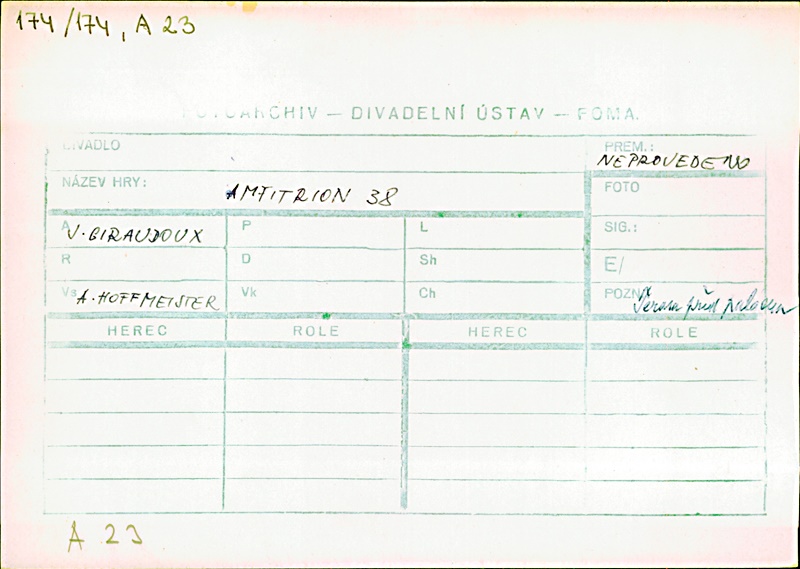 174/174, A 23
FOTOARCHIV — DIVADELNÍ ÚSTAV — FOMA.
DIVADLO
PREM.:
NEPROVEDENO
NÁZEV HRY:
AMFITRION 38
FOTO
A V. GIRAUDOUX
P
L
SIG.:
R
D
Sh
E/
Vs A. HOFFMEISTER
Vk
Ch
POZN Terasa před palácem
HEREC ROLE HEREC ROLE
A 23